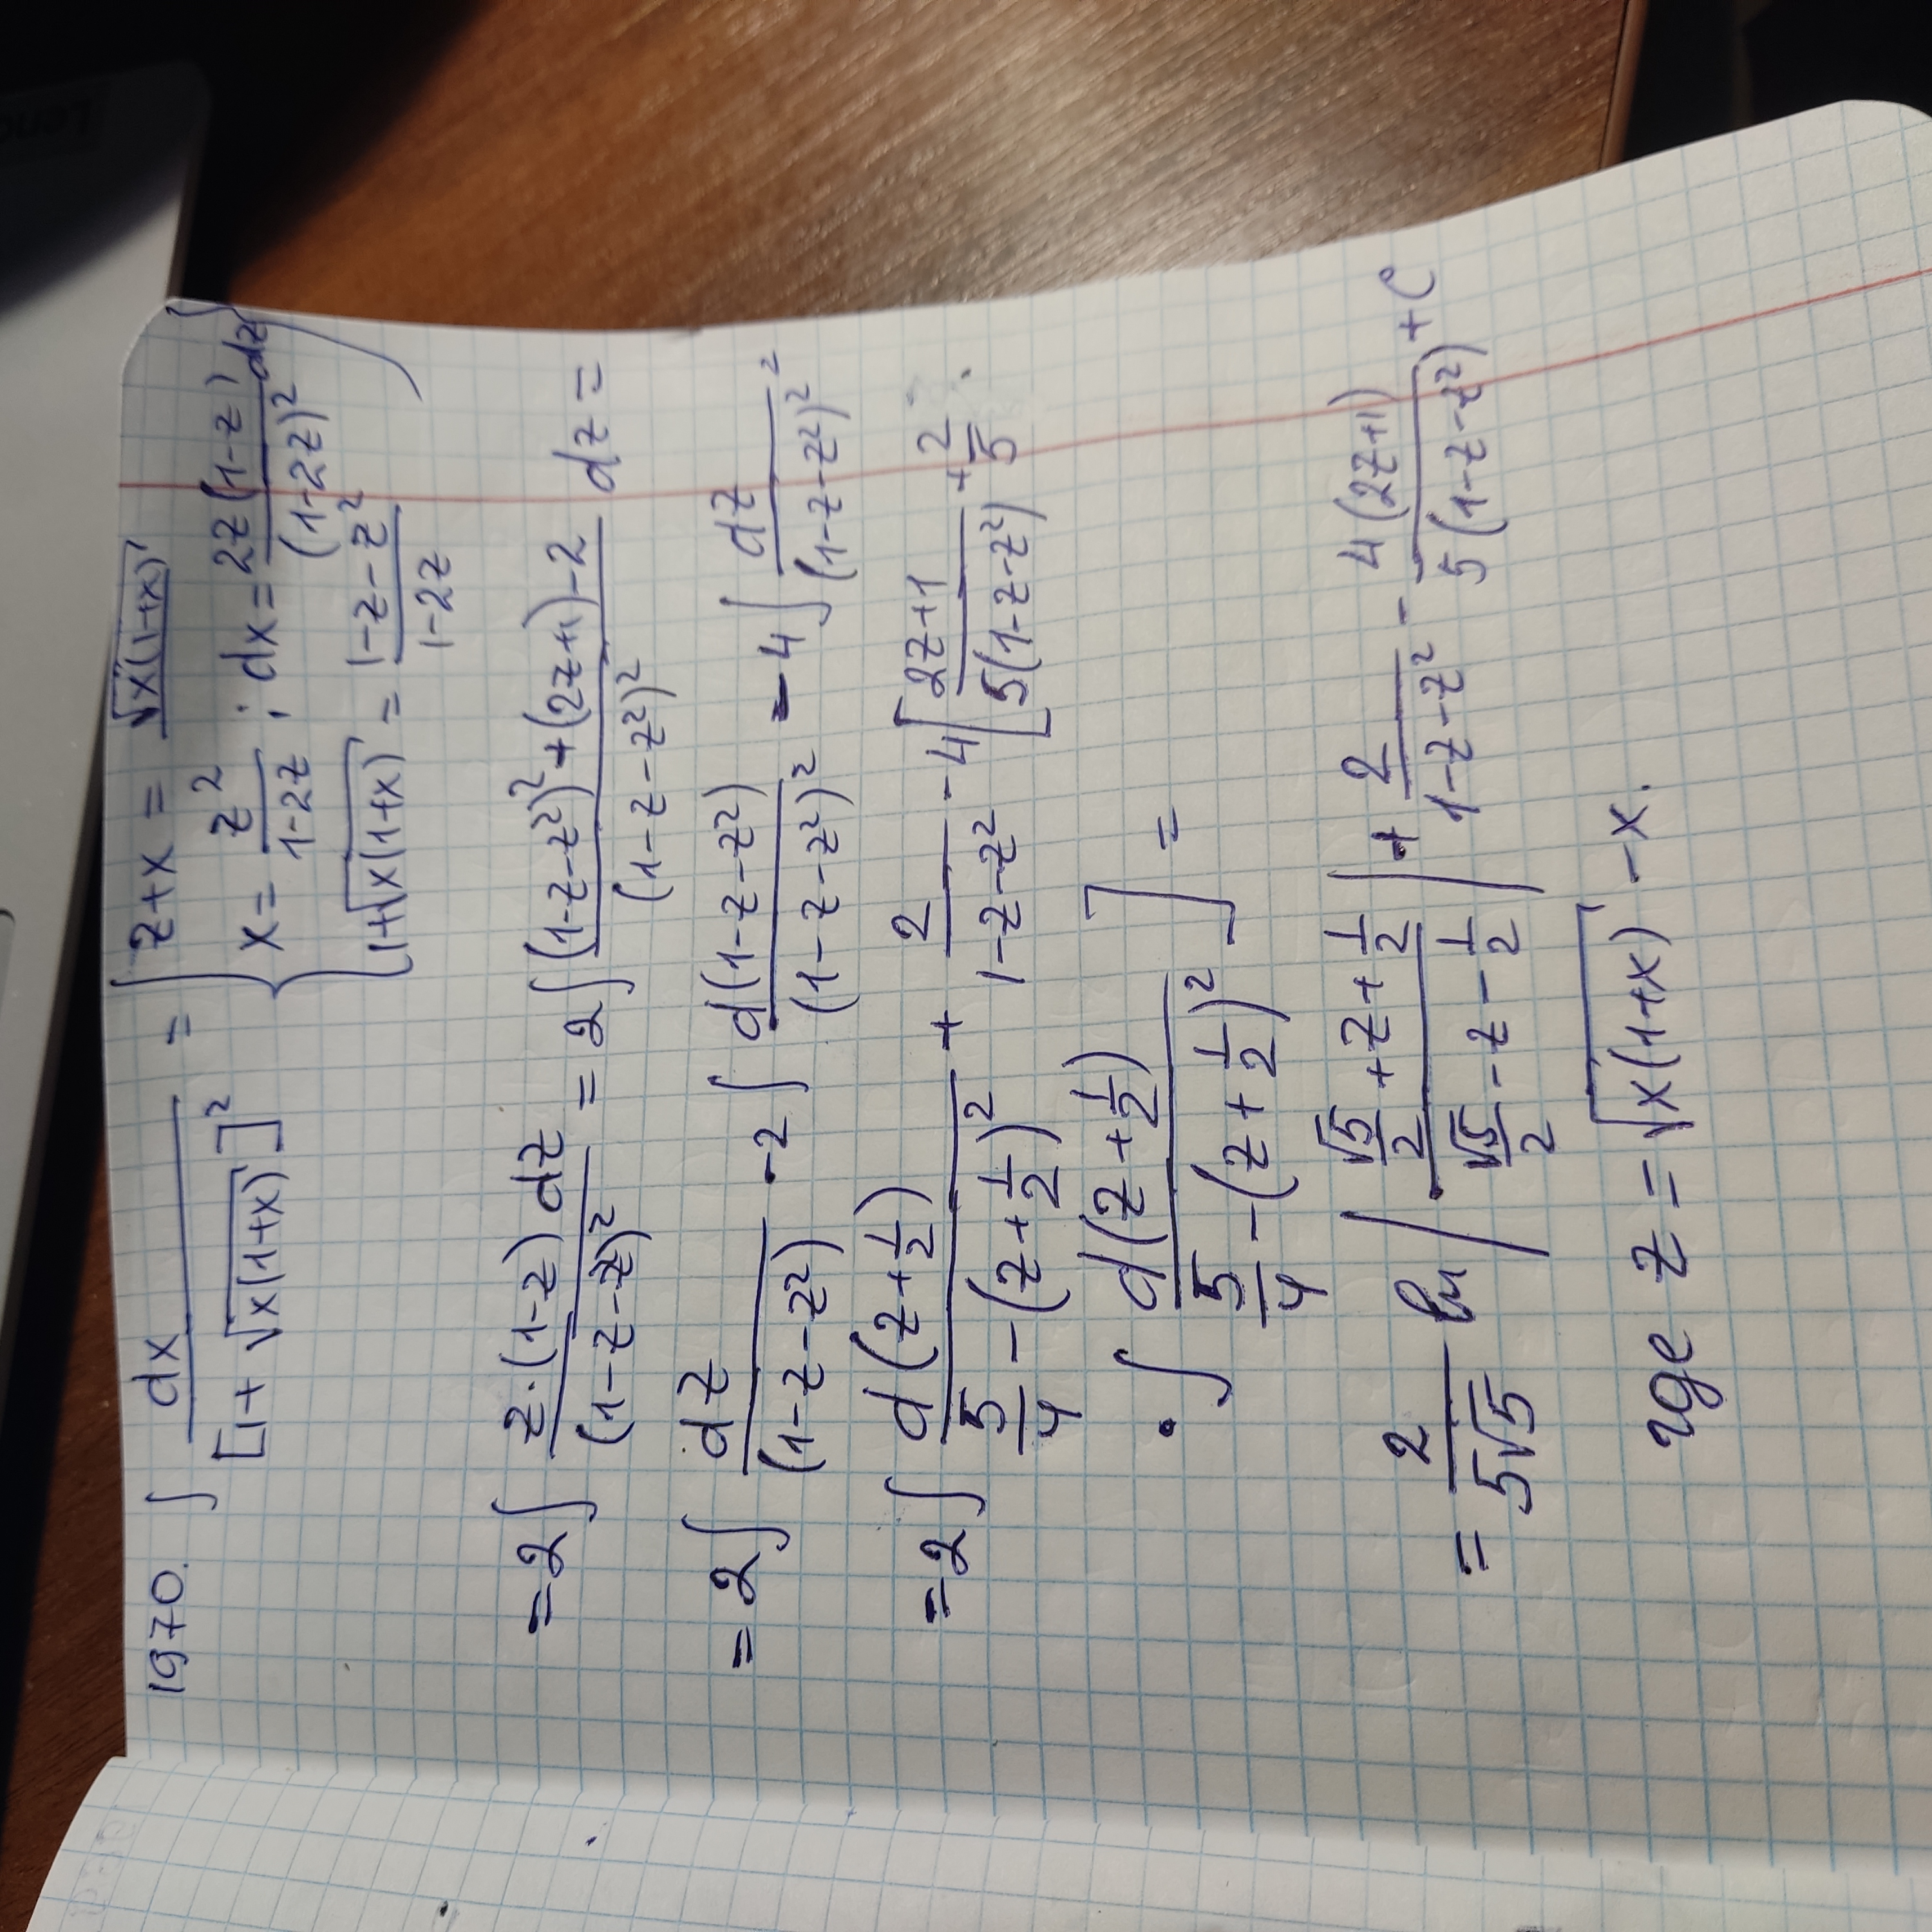 1970. ∫ dx / [1+ √(x(1+x))]² = { z+x = √(x(1+x))
x = z² / (1-2z) ; dx = 2z(1-z) / (1-2z)² dz
1+√(x(1+x)) = (1-z-z²) / (1-2z) }
= 2 ∫ z·(1-z) dz / (1-z-z)² = 2 ∫ ((1-z-z²)² + (2z+1) - 2) / (1-z-z²)² dz =
= 2 ∫ dz / (1-z-z²) - 2 ∫ d(1-z-z²) / (1-z-z²)² - 4 ∫ dz / (1-z-z²)² =
= 2 ∫ d(z+1/2) / (5/4 - (z+1/2)²) + 2 / (1-z-z²) - 4 [ (2z+1) / 5(1-z-z²) + 2/5 ·
· ∫ d(z+1/2) / (5/4 - (z+1/2)²) ] =
= 2 / 5√5 ln | (√5/2 + z + 1/2) / (√5/2 - z - 1/2) | + 2 / (1-z-z²) - 4(2z+1) / 5(1-z-z²) + C
где z = √(x(1+x)) - x.